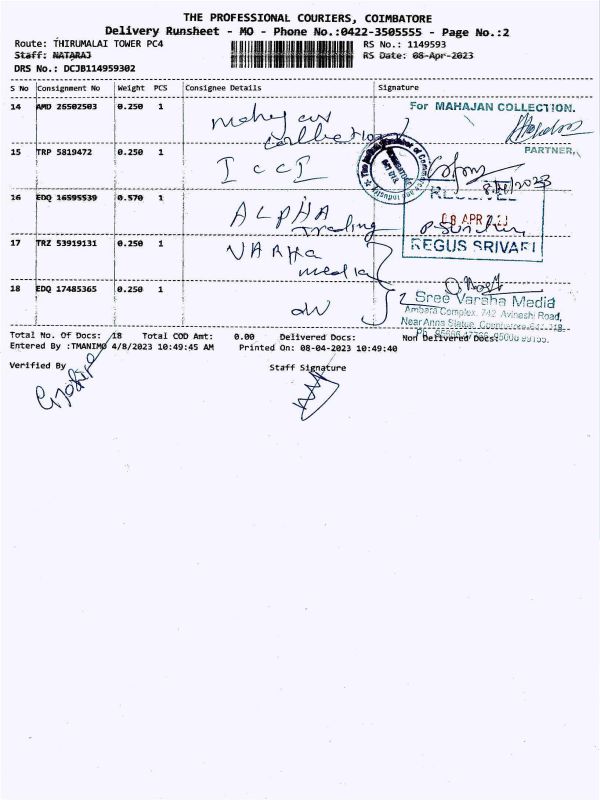 THE PROFESSIONAL COURIERS, COIMBATORE
Delivery Runsheet - MO - Phone No.:0422-3505555 - Page No.:2
Route: THIRUMALAI TOWER PC4 RS No.: 1149593
Staff: NATARAJ RS Date: 08-Apr-2023
DRS No.: DCJB114959302
S No Consignment No Weight PCS Consignee Details Signature
14 AMD 26502503 0.250 1 Mahajan For MAHAJAN COLLECTION.
collection
PARTNER.
15 TRP 5819472 0.250 1 ICCI 8/4/2023
16 EDQ 16595539 0.570 1 ALPHA RECEIVED
Trading 08 APR 2023
REGUS SRIVARI
17 TRZ 53919131 0.250 1 VARHA
media
18 EDQ 17485365 0.250 1 Sree Varsha Media
Ambara Complex, 742 Avinashi Road,
Near Anna Statue, Coimbatore-641 018.
Total No. Of Docs: 18 Total COD Amt: 0.00 Delivered Docs: Non Delivered Docs:
Entered By :TMANIMO 4/8/2023 10:49:45 AM Printed On: 08-04-2023 10:49:40
Verified By Staff Signature